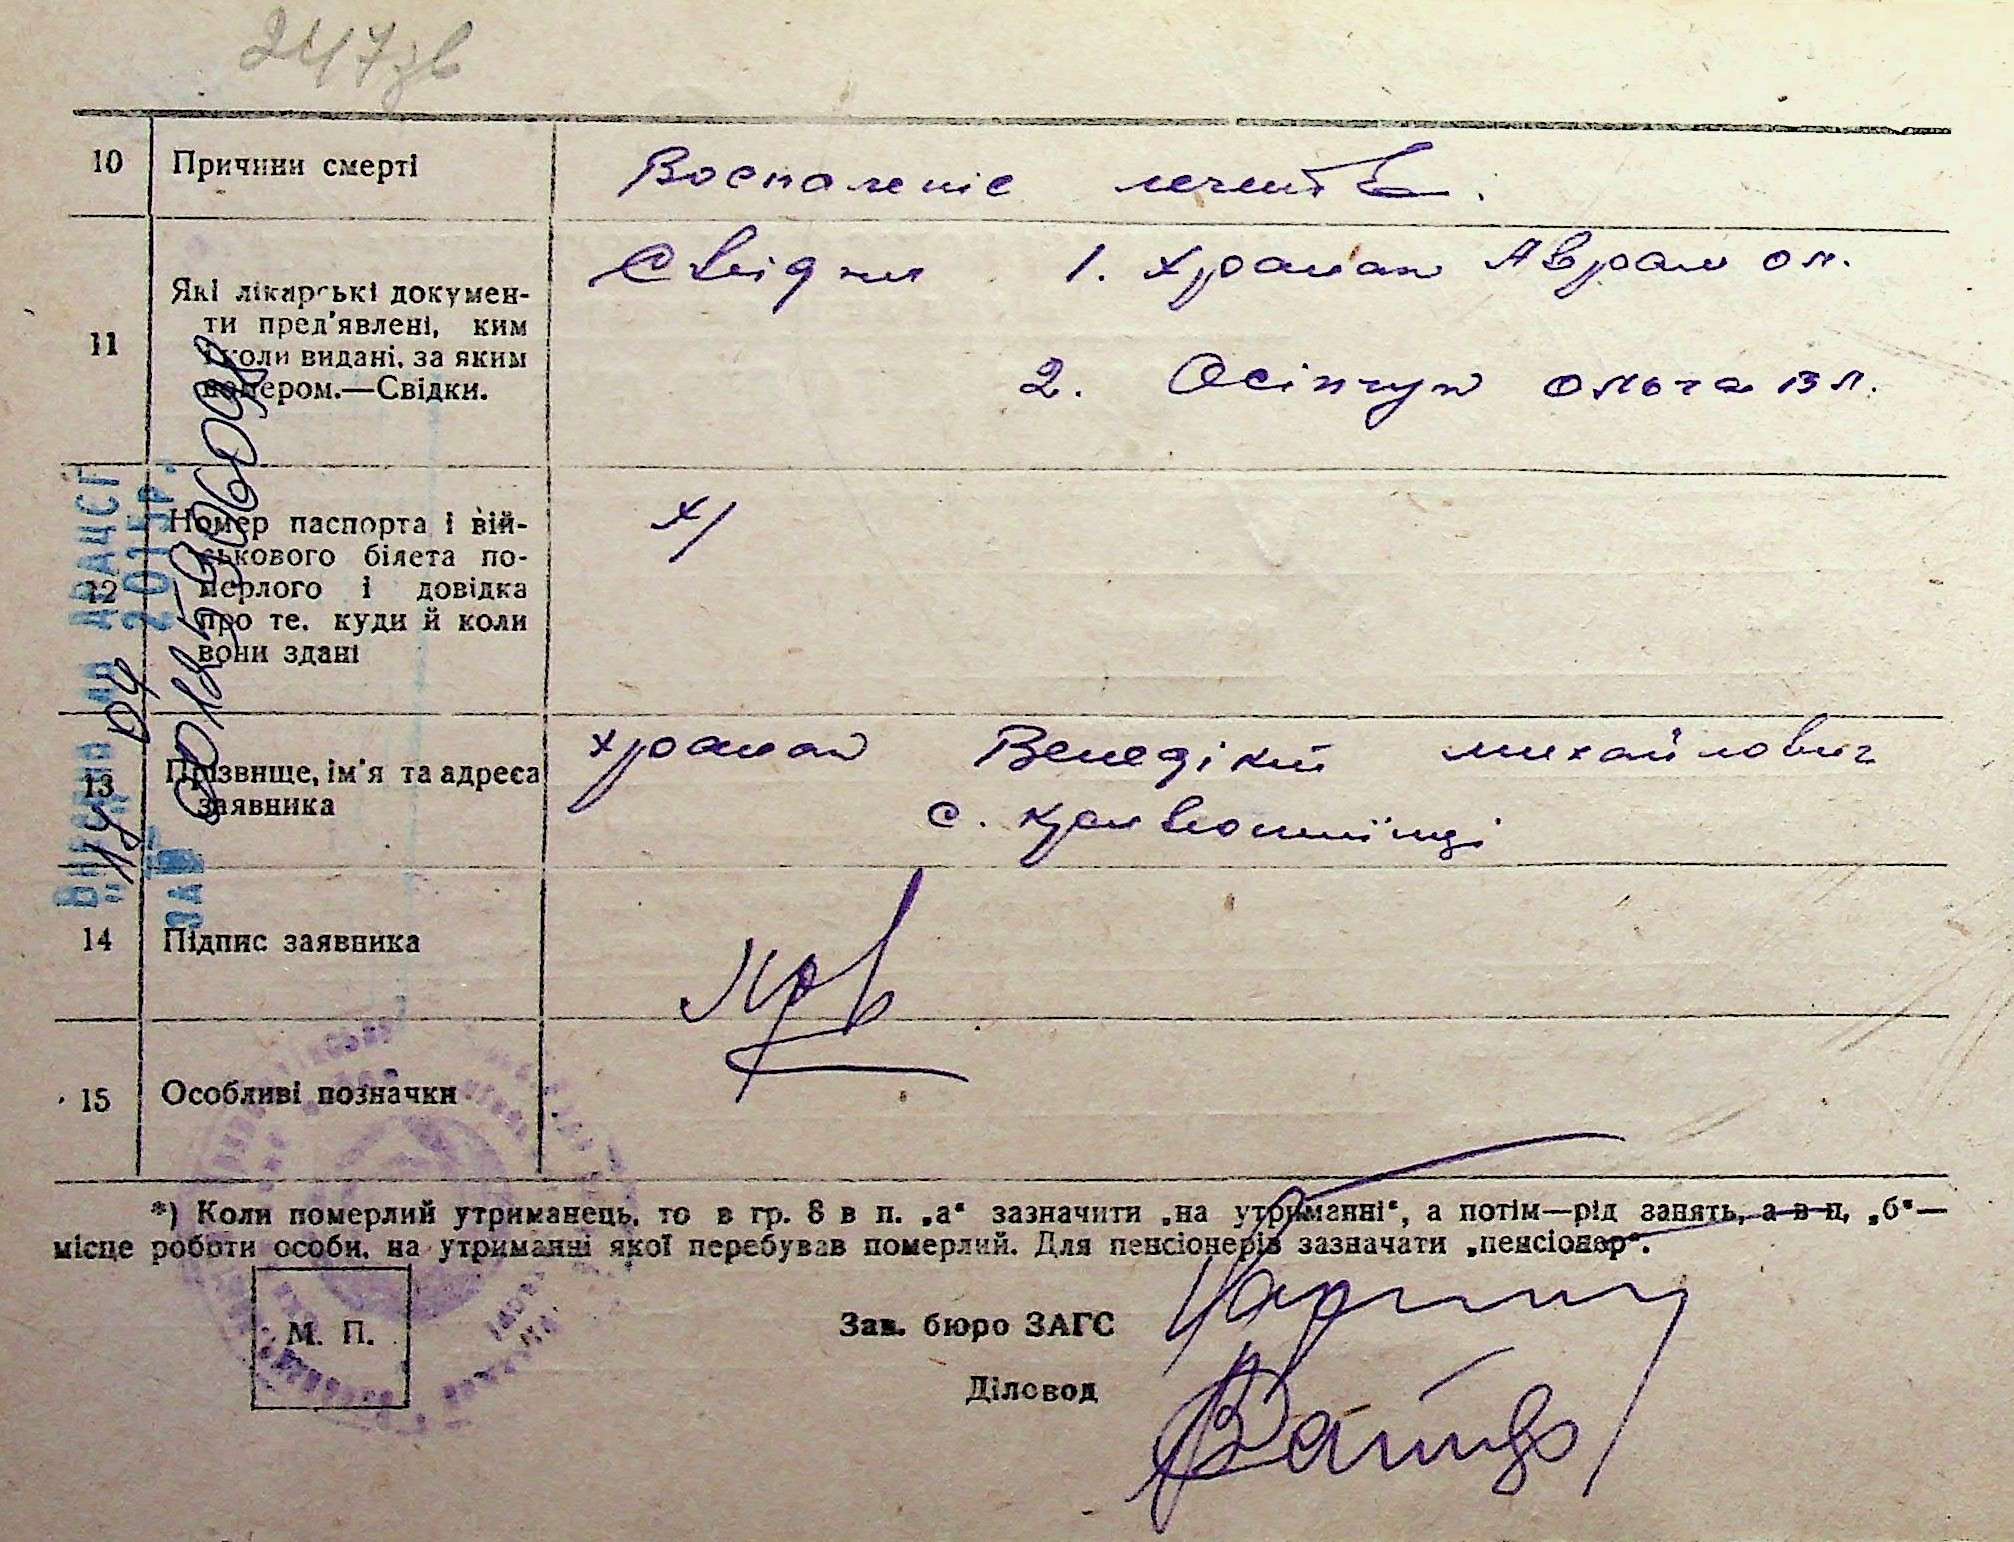 247зв
10 Причини смерті Воспаленіе
11 Які лікарські докумен-
ти пред'явлені, ким
і коли видані, за яким
номером.—Свідки.
Свідки 1. Храпан Аврам Ол.
2. Осіпчук Ольга Вл.
12 Номер паспорта і вій-
ськового білета по-
мерлого і довідка
про те, куди й коли
вони здані
х/
13 Прізвище, ім'я та адреса
заявника
Храпан Венедікт Михайлович
с.
14 Підпис заявника
15 Особливі позначки
*) Коли померлий утриманець, то в гр. 8 в п. „а“ зазначити „на утриманні“, а потім—рід занять, а в п. „б“—
місце роботи особи, на утриманні якої перебував померлий. Для пенсіонерів зазначати „пенсіонер“.
М. П.
Зав. бюро ЗАГС
Діловод
ДРАЦСГ
2015р.